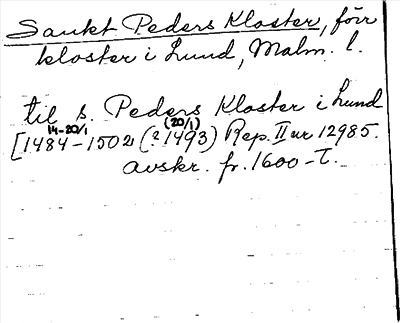 Sankt Peders Kloster, förr
kloster i Lund, Malm. l.
til s. Peders Kloster i Lund
14-20/1 (20/1)
[1484-1502 (?1493) Rep. II nr 12985.
avskr. fr. 1600-t.